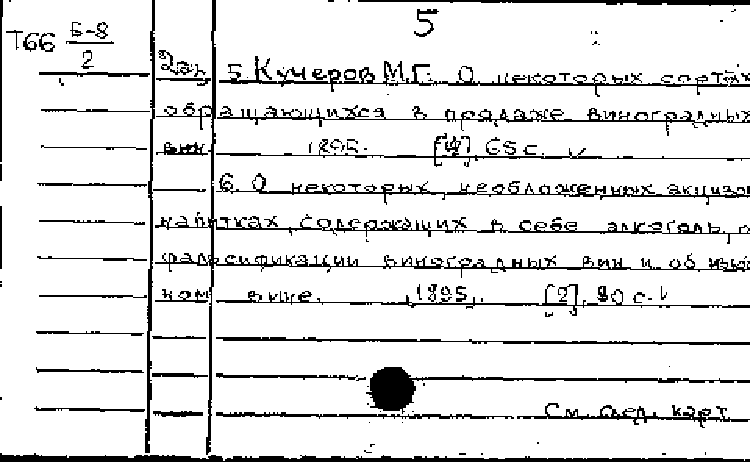 5
Т66 Б-8/2
2эк. 5. Кучеров М.Г. О некоторых сортах
обращающихся в продаже виноградных
вин 1895. 65 с. v
6. О некоторых, необложенных акцизо
напитках, содержащих в себе алкоголь, о
фальсификации виноградных вин и об
ном вине. 1895. [2], 90 с. v
См. след. карт